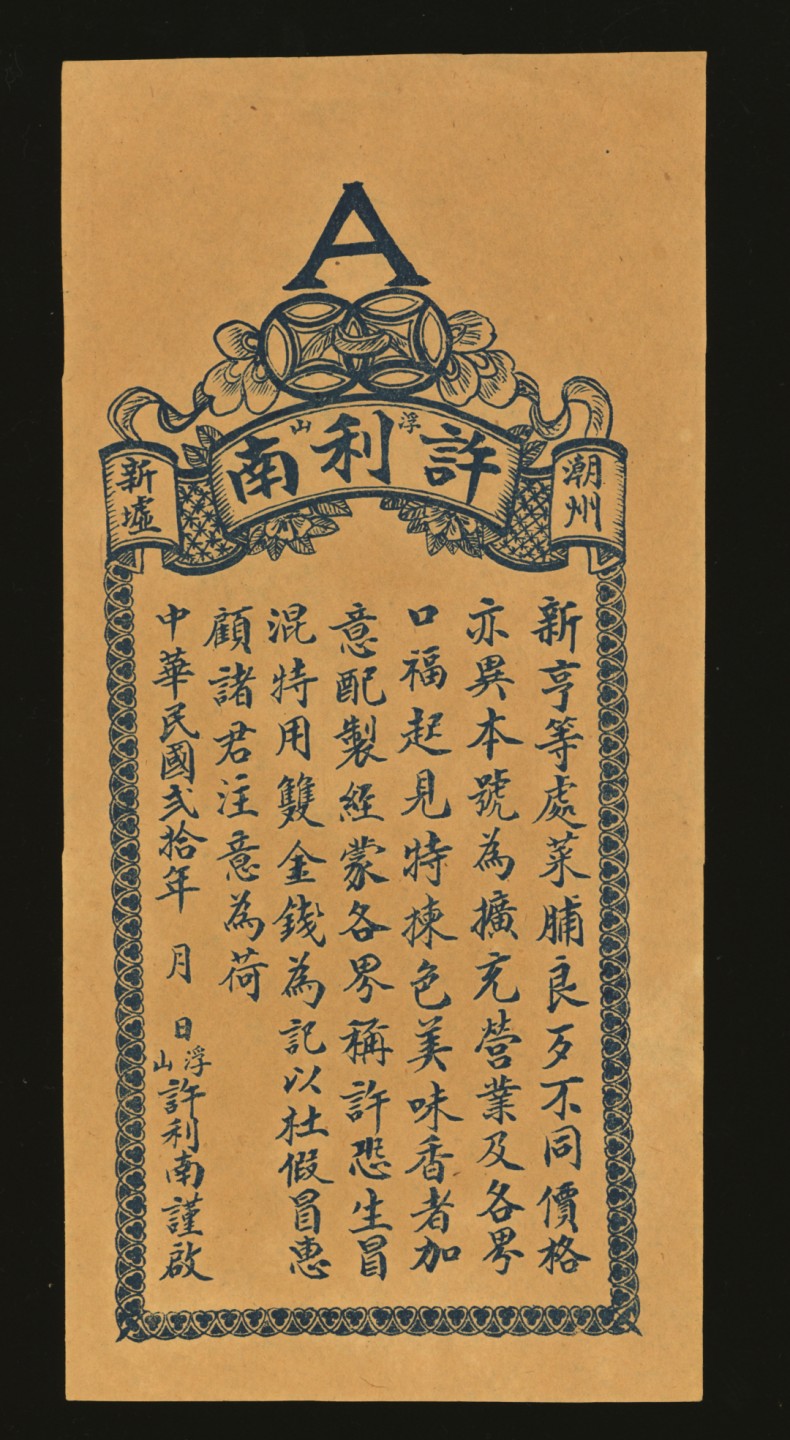 A
許利南
浮山
潮州
新墟
新亨等處菜脯良歹不同價格
亦異本號為擴充營業及各界
口福起見特揀色美味香者加
意配製經蒙各界稱許恐生冒
混特用雙金錢為記以杜假冒惠
顧諸君注意為荷
中華民國弍拾年 月 日 浮山 許利南謹啟